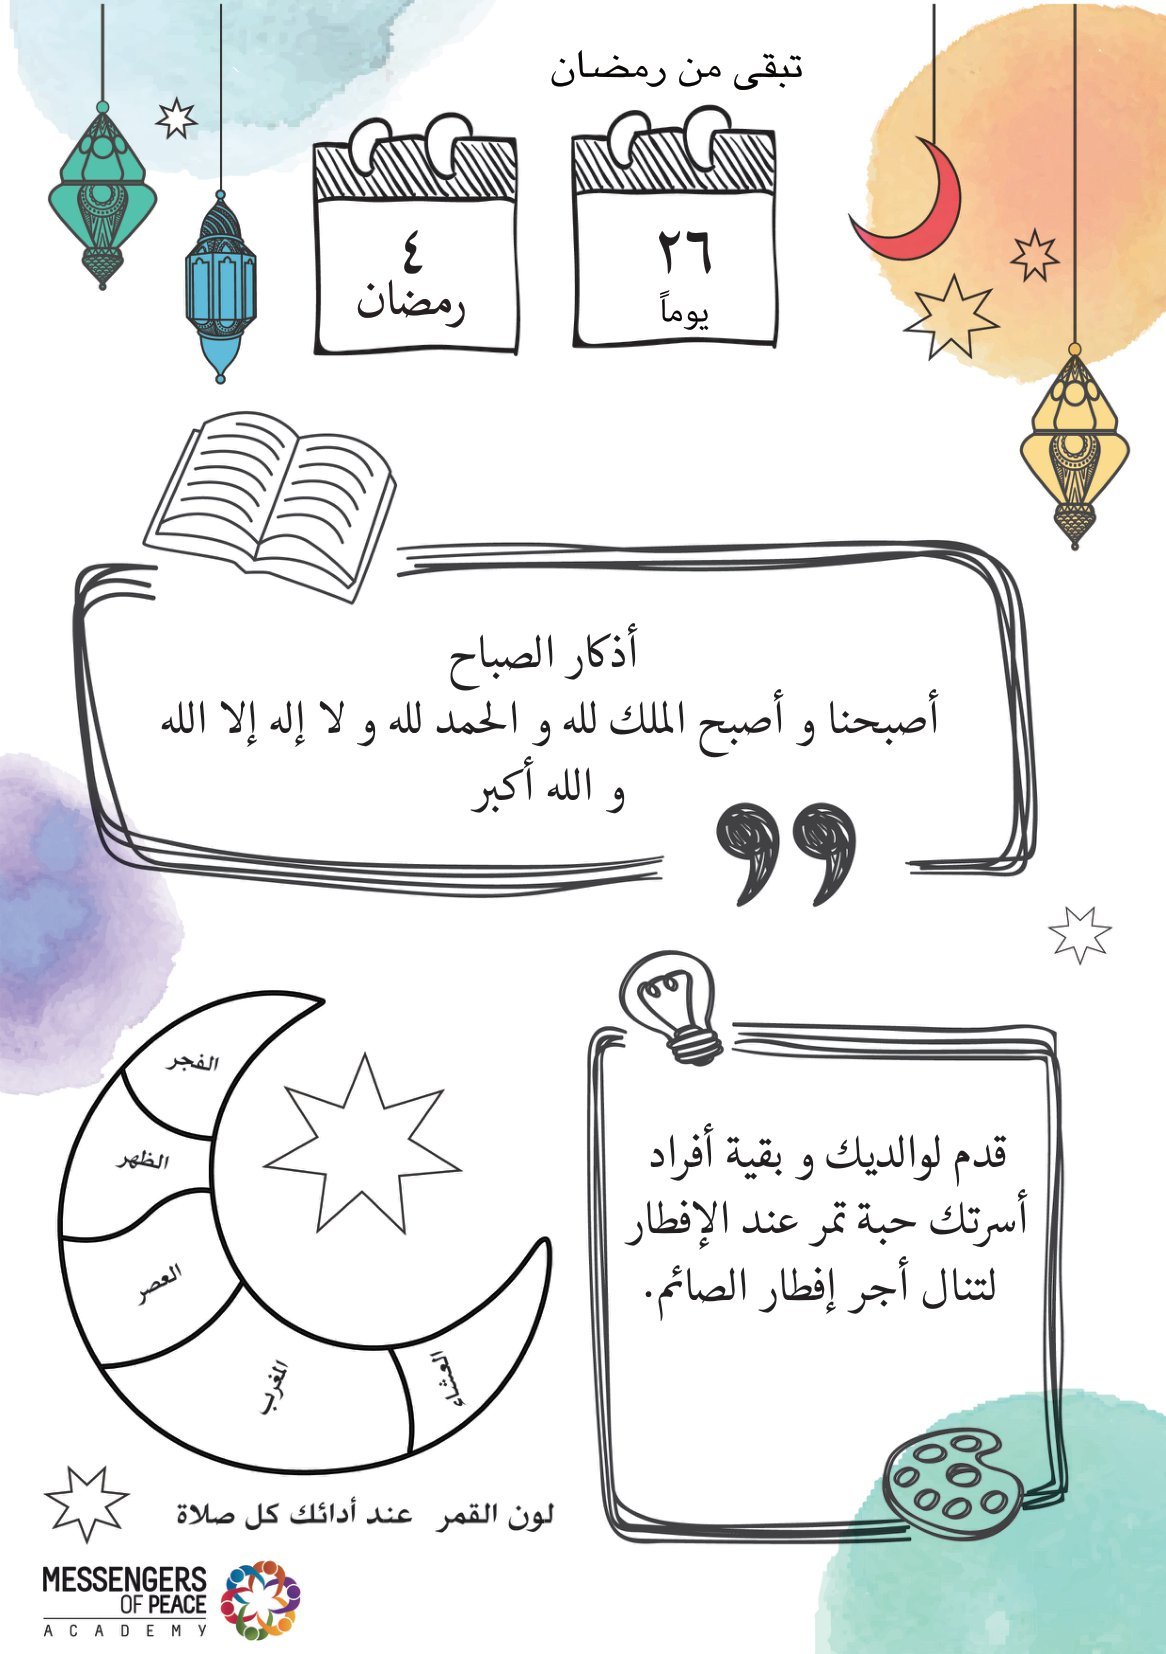 تبقى من رمضان
٢٦
يوماً
٤
رمضان
أذكار الصباح
أصبحنا و أصبح الملك لله و الحمد لله و لا إله إلا الله
و الله أكبر
الفجر
الظهر
العصر
المغرب
العشاء
قدم لوالديك و بقية أفراد
أسرتك حبة تمر عند الإفطار
لتنال أجر إفطار الصائم.
لون القمر عند أدائك كل صلاة
MESSENGERS
OF PEACE
ACADEMY